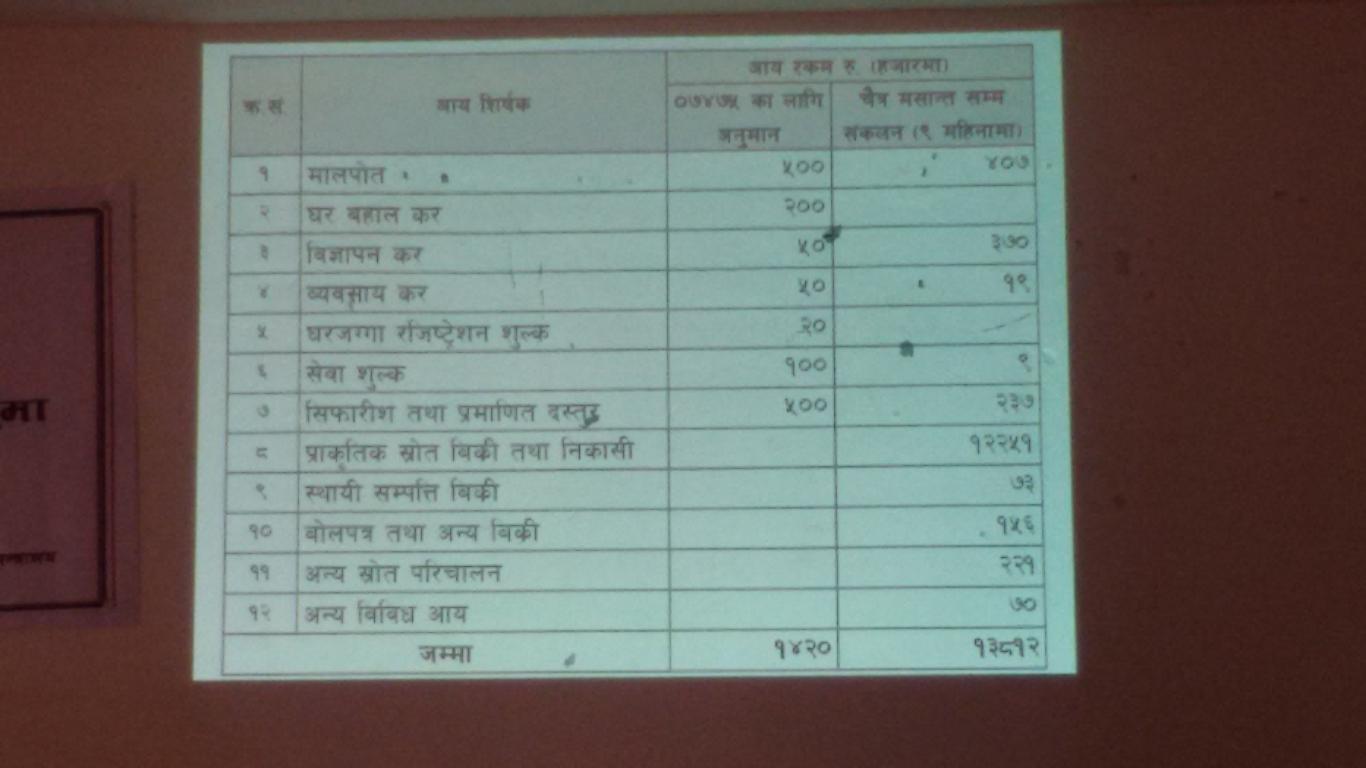 आय रकम रु. (हजारमा)
क.सं. आय शिर्षक ०७४७५ का लागि अनुमान चैत्र मसान्त सम्म संकलन (९ महिनामा)
१ मालपोत ५०० ४०७
२ घर बहाल कर २००
३ विज्ञापन कर ५० ३७०
४ व्यवसाय कर ५० १९
५ घरजग्गा रजिष्ट्रेशन शुल्क २०
६ सेवा शुल्क १०० ९
७ सिफारीश तथा प्रमाणित दस्तुर ५०० २३७
८ प्राकृतिक स्रोत बिक्री तथा निकासी १२२५१
९ स्थायी सम्पत्ति बिक्री ७३
१० बोलपत्र तथा अन्य बिक्री १५६
११ अन्य स्रोत परिचालन २२१
१२ अन्य बिबिध आय ७०
जम्मा १४२० १३८१२